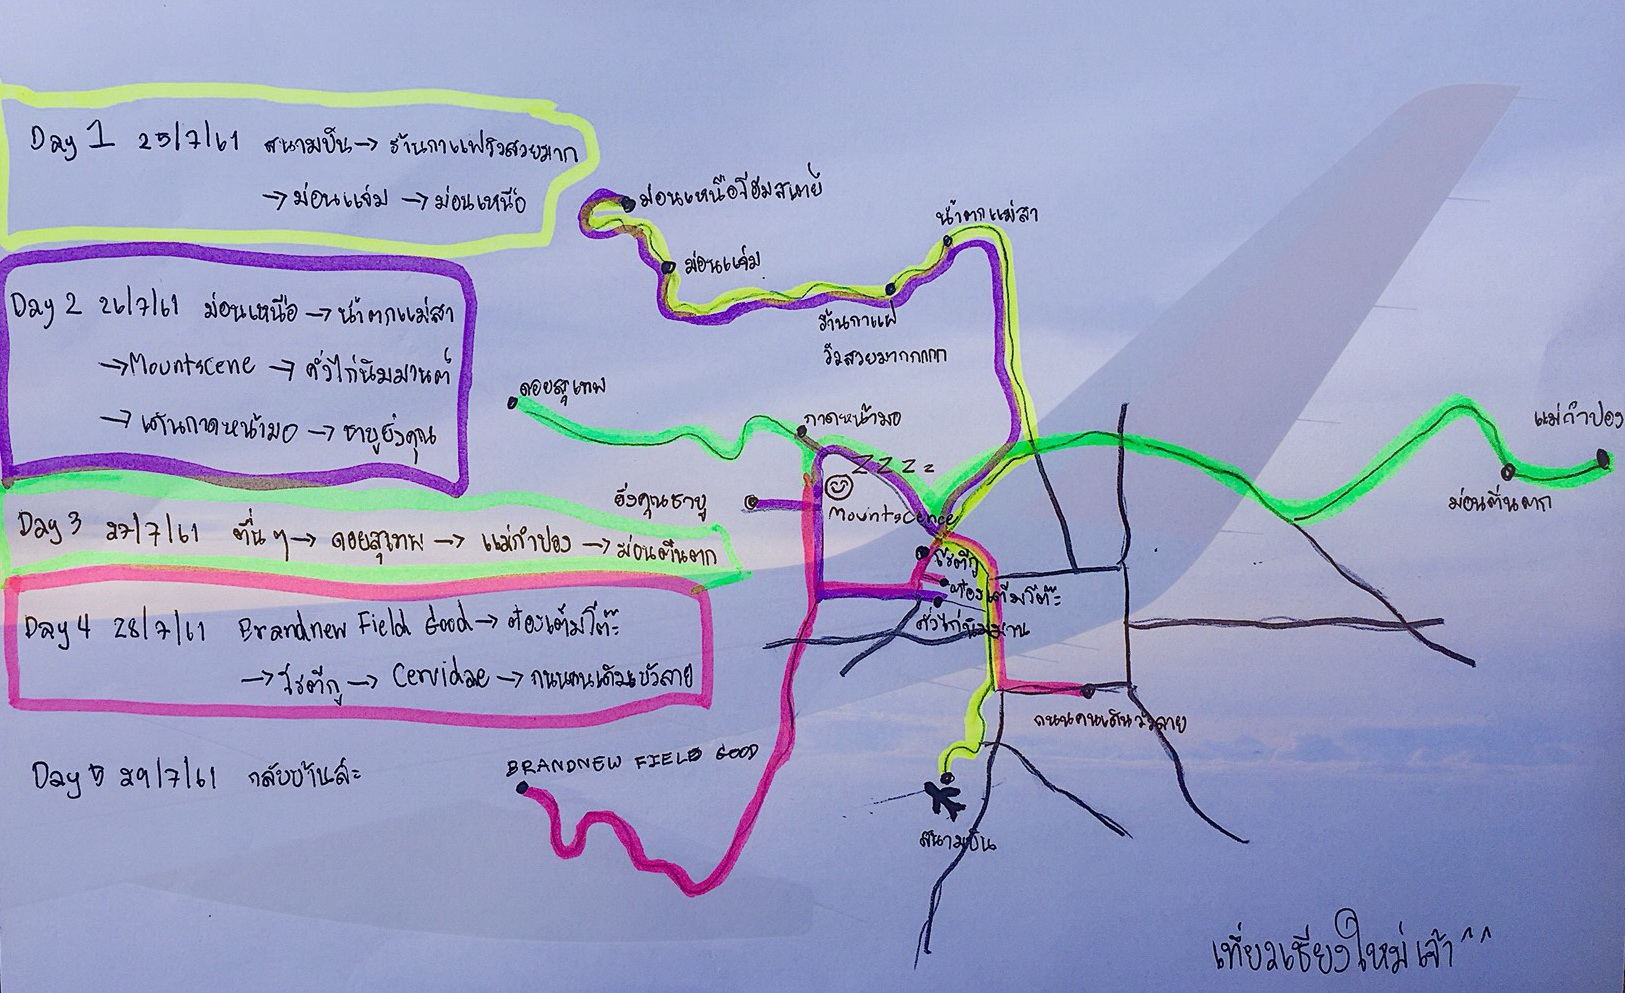 Day 1 25/7/61 สนามบิน → ร้านกาแฟวิวสวยมาก
→ ม่อนแจ่ม → ม่อนเหนือ
Day 2 26/7/61 ม่อนเหนือ → น้ำตกแม่สา
→ Mountscene → คั่วไก่นิมมานต์
→ เดินกาดหน้ามอ → ชาบูฮั่งคุณ
Day 3 27/7/61 ตื่นๆ → ดอยสุเทพ → แม่กำปอง → ม่อนตีนตก
Day 4 28/7/61 Brandnew Field Good → ต๋องเต็มโต๊ะ
→ โรตีกู → Cervidae → ถนนคนเดินวัวลาย
Day 5 29/7/61 กลับบ้านล่ะ
ม่อนเหนือโฮมสเตย์
น้ำตกแม่สา
ม่อนแจ่ม
ร้านกาแฟ
วิวสวยมากกกกก
ดอยสุเทพ
กาดหน้ามอ
ZZZz
ฮั่งคุณชาบู
Mountscene
แม่กำปอง
ม่อนตีนตก
โรตีกู
ต๋องเต็มโต๊ะ
คั่วไก่นิมมาน
ถนนคนเดินวัวลาย
BRANDNEW FIELD GOOD
สนามบิน
เที่ยวเชียงใหม่เจ้า ^^